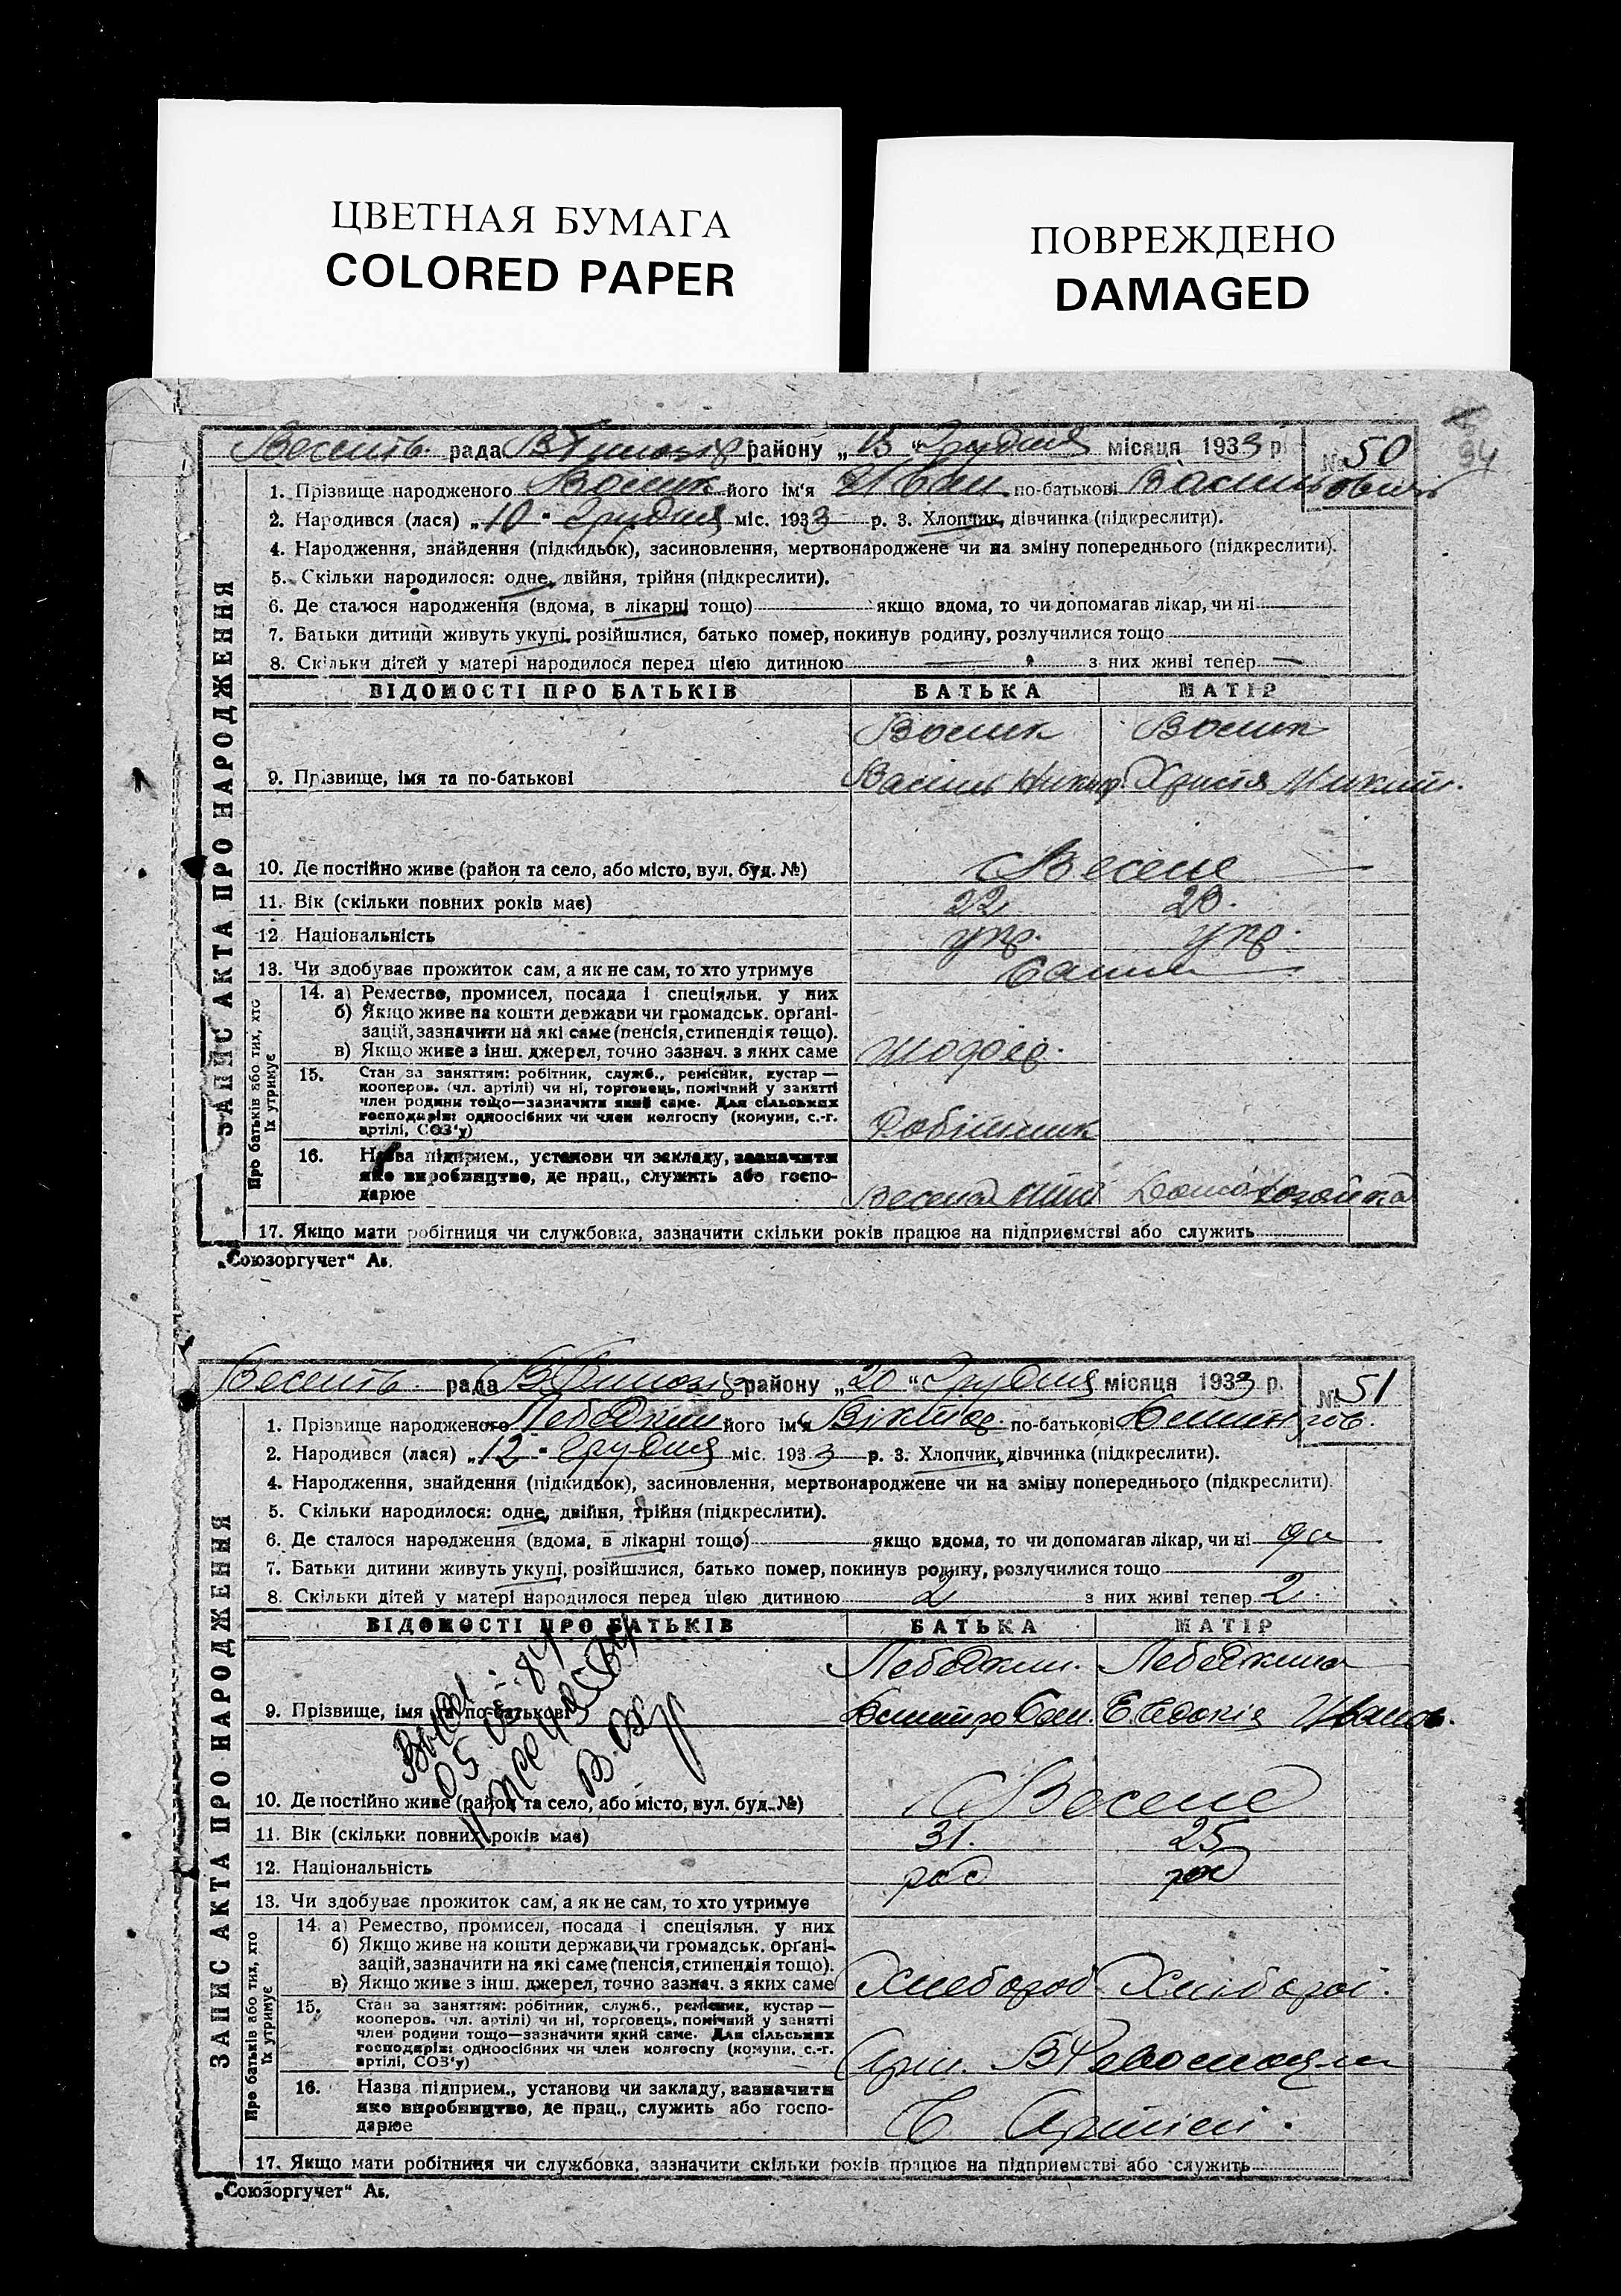 ЦВЕТНАЯ БУМАГА
COLORED PAPER
ПОВРЕЖДЕНО
DAMAGED
94
рада району „13“ Грудня місяця 1933 р. № 50
1. Прізвище народженого його ім'я Іван по-батькові Васильович
2. Народився (лася) „10“ Грудня міс. 1933 р. 3. Хлопчик, дівчинка (підкреслити).
4. Народження, знайдення (підкидьок), засиновлення, мертвонароджене чи на зміну попереднього (підкреслити).
5. Скільки народилося: одне, двійня, трійня (підкреслити).
6. Де сталося народження (вдома, в лікарні тощо) якщо вдома, то чи допомагав лікар, чи ні
7. Батьки дитини живуть укупі, розійшлися, батько помер, покинув родину, розлучилися тощо
8. Скільки дітей у матері народилося перед цією дитиною — з них живі тепер —
ЗАПИС АКТА ПРО НАРОДЖЕННЯ
ВІДОМОСТІ ПРО БАТЬКІВ БАТЬКА МАТІР
9. Прізвище, імя та по-батькові Василь Христя
10. Де постійно живе (район та село, або місто, вул. буд. №) Веселе
11. Вік (скільки повних років має) 22 20.
12. Національність укр. укр.
13. Чи здобуває прожиток сам, а як не сам, то хто утримує
Про батьків або тих, хто їх утримує
14. а) Ремество, промисел, посада і спеціяльн. у них
б) Якщо живе на кошти держави чи громадськ. орґані-
зацій, зазначити на які саме (пенсія, стипендія тощо).
в) Якщо живе з інш. джерел, точно зазнач. з яких саме
15. Стан за заняттям: робітник, служб., ремісник, кустар —
кооперов. (чл. артілі) чи ні, торговець, помічний у занятті
член родини тощо—зазначити який саме. Для сільських
господарів: одноосібних чи член колгоспу (комуни, с.-г.
артілі, СОЗ'у) Робітник
16. Назва підприєм., установи чи закладу, зазначити
яке виробництво, де прац., служить або госпо-
дарює Домохозяйка
17. Якщо мати робітниця чи службовка, зазначити скільки років працює на підприємстві або служить
„Союзоргучет“ Ав.
рада району „20“ Грудня місяця 1933 р. № 51
1. Прізвище народженого Лебедкин його ім'я Віктор по-батькові
2. Народився (лася) „12“ Грудня міс. 1933 р. 3. Хлопчик, дівчинка (підкреслити).
4. Народження, знайдення (підкидьок), засиновлення, мертвонароджене чи на зміну попереднього (підкреслити).
5. Скільки народилося: одне, двійня, трійня (підкреслити).
6. Де сталося народження (вдома, в лікарні тощо) якщо вдома, то чи допомагав лікар, чи ні
7. Батьки дитини живуть укупі, розійшлися, батько помер, покинув родину, розлучилися тощо
8. Скільки дітей у матері народилося перед цією дитиною 2 з них живі тепер 2
ЗАПИС АКТА ПРО НАРОДЖЕННЯ
ВІДОМОСТІ ПРО БАТЬКІВ БАТЬКА МАТІР
Лебедкин. Лебедкина
9. Прізвище, імя та по-батькові Евдокія Иванов.
10. Де постійно живе (район та село, або місто, вул. буд. №) Веселе
11. Вік (скільки повних років має) 31. 25
12. Національність рос рос
13. Чи здобуває прожиток сам, а як не сам, то хто утримує
Про батьків або тих, хто їх утримує
14. а) Ремество, промисел, посада і спеціяльн. у них
б) Якщо живе на кошти держави чи громадськ. орґані-
зацій, зазначити на які саме (пенсія, стипендія тощо).
в) Якщо живе з інш. джерел, точно зазнач. з яких саме Хлебороб Хлебороб.
15. Стан за заняттям: робітник, служб., ремісник, кустар —
кооперов. (чл. артілі) чи ні, торговець, помічний у занятті
член родини тощо—зазначити який саме. Для сільських
господарів: одноосібних чи член колгоспу (комуни, с.-г.
артілі, СОЗ'у)
16. Назва підприєм., установи чи закладу, зазначити
яке виробництво, де прац., служить або госпо-
дарює В Артілі.
17. Якщо мати робітниця чи службовка, зазначити скільки років працює на підприємстві або служить
„Союзоргучет“ Ав.